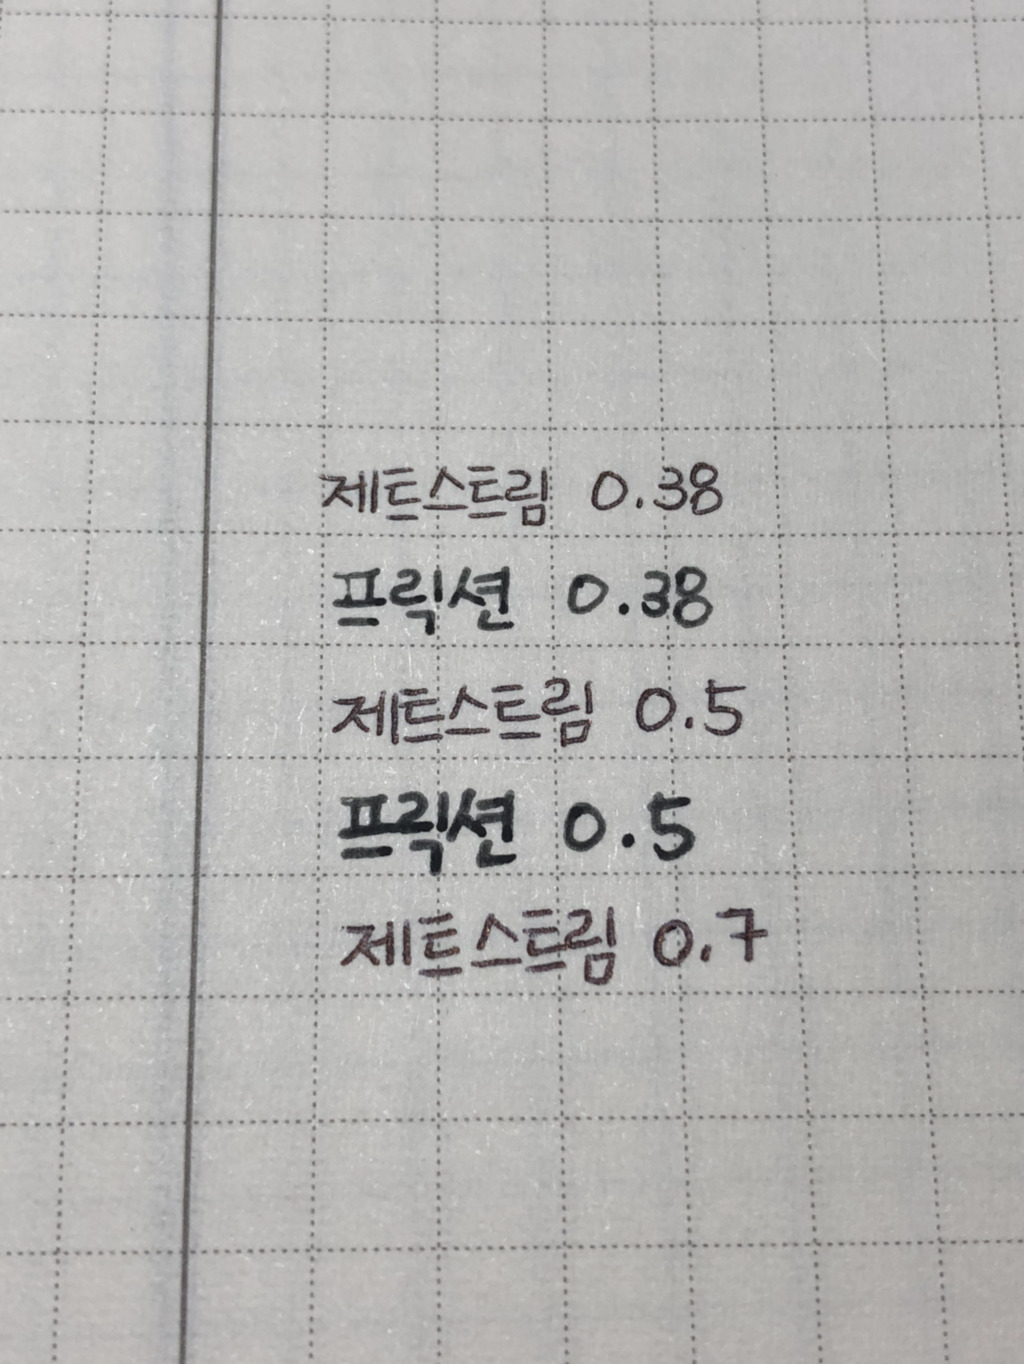 제트스트림 0.38
프릭션 0.38
제트스트림 0.5
프릭션 0.5
제트스트림 0.7